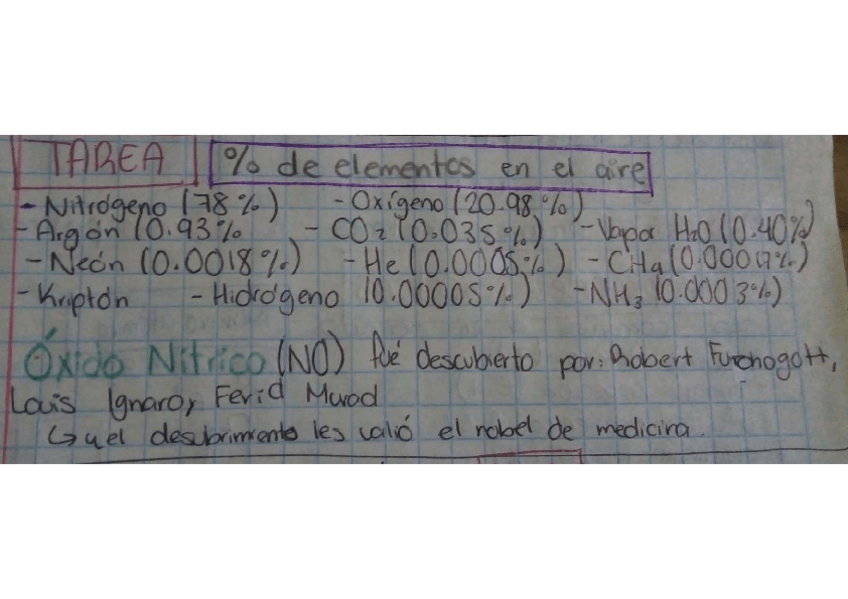 TAREA % de elementos en el aire
- Nitrógeno (78%) - Oxígeno (20.98%)
- Argón (0.93% - CO2 (0.035%) - Vapor H2O (0.40%)
- Neón (0.0018%) - He (0.0005%) - CH4 (0.00017%)
- Kriptón - Hidrógeno (0.00005%) - NH3 (0.0003%)
Óxido Nítrico (NO) fué descubierto por: Robert Furchogott,
Louis Ignaro, Ferid Murad
↳ y el descubrimiento les valió el nobel de medicina.